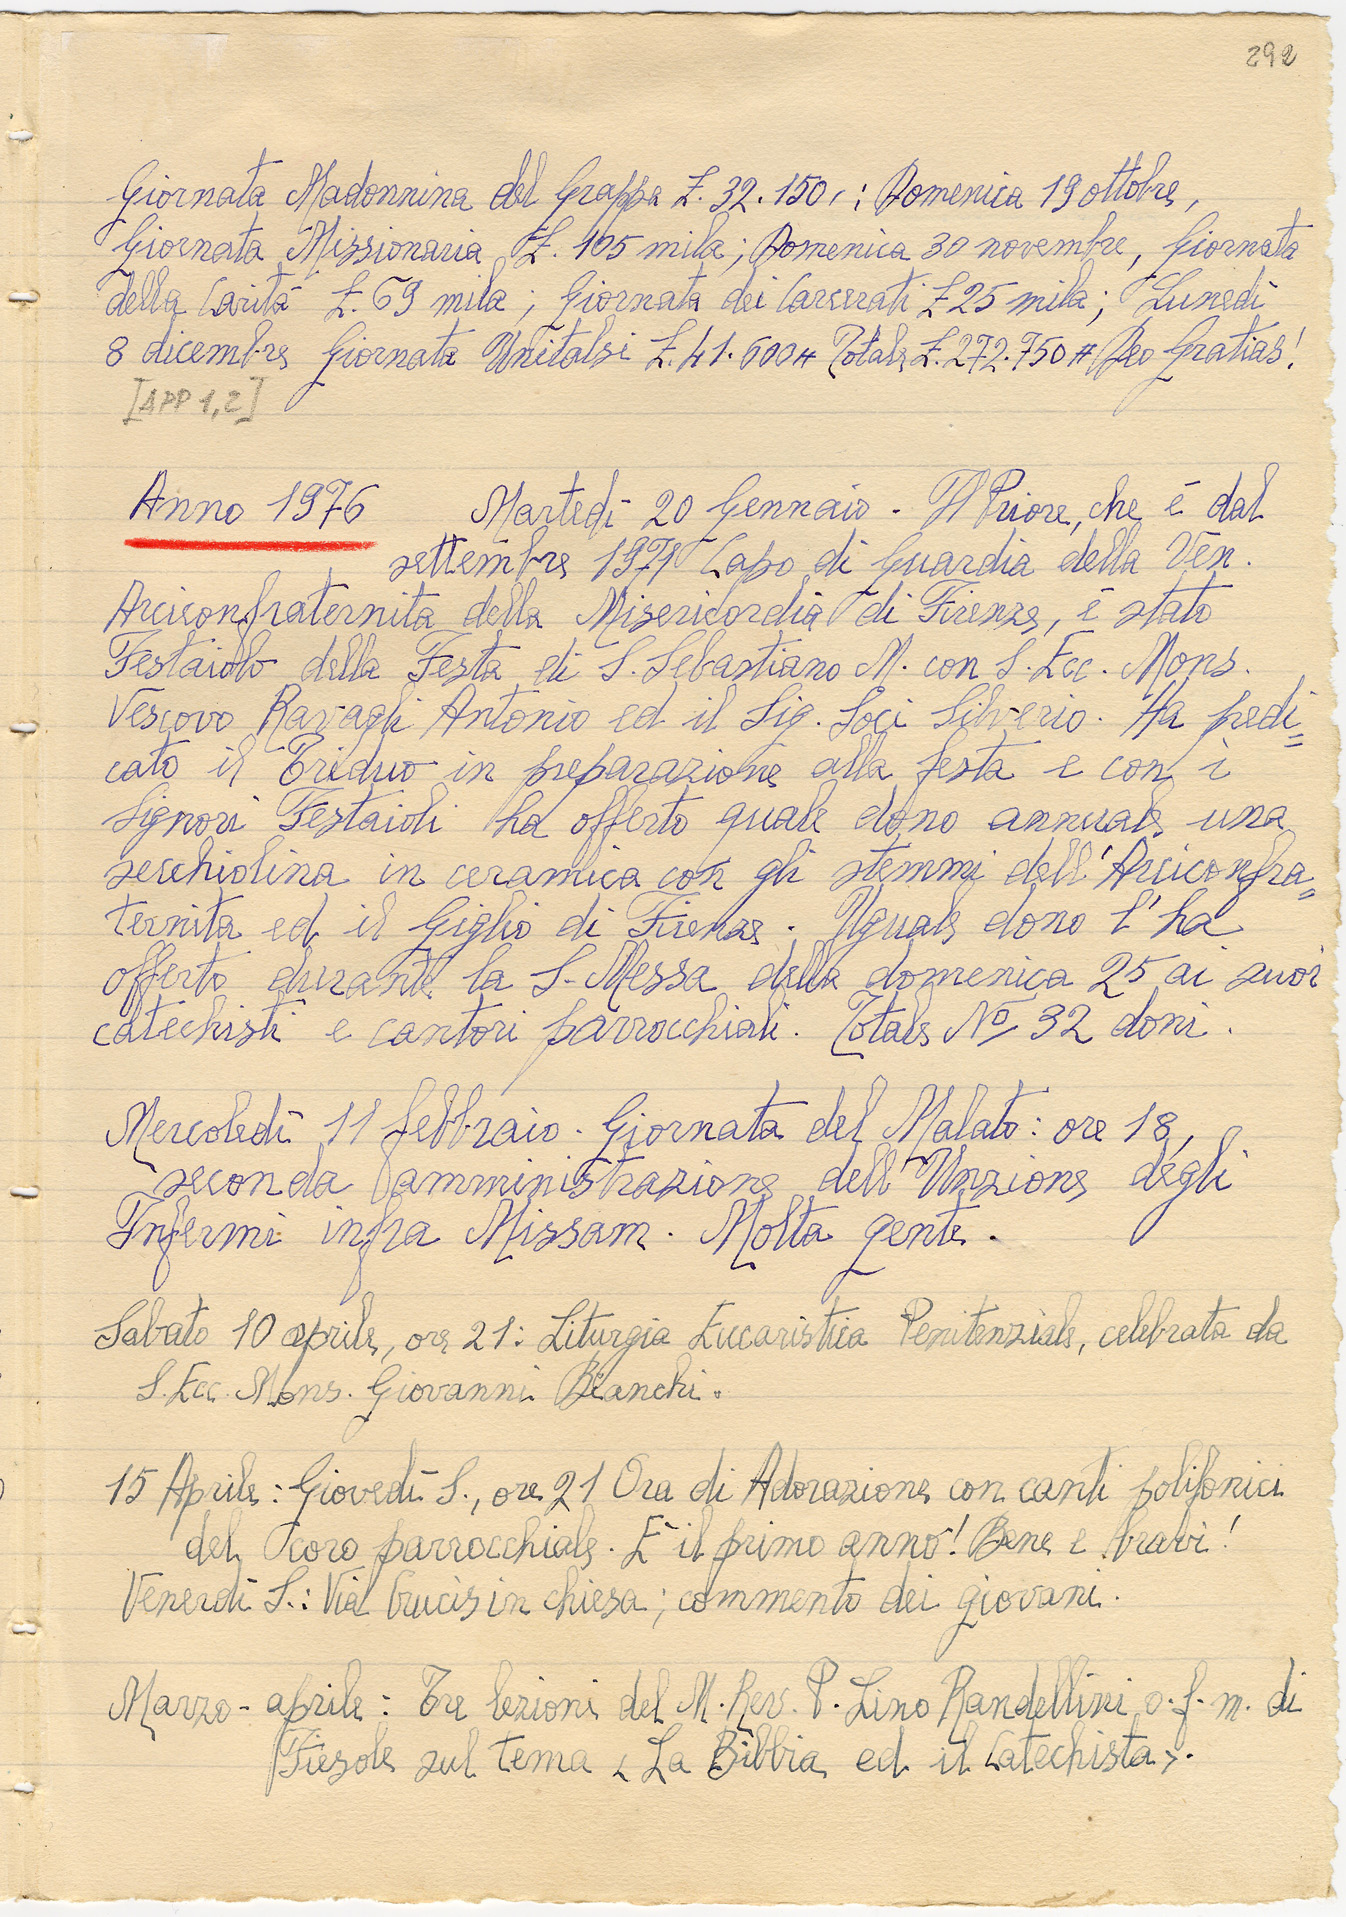 292
Giornata Madonnina del Grappa £. 32.150,; Domenica 19 ottobre,
Giornata Missionaria £. 105 mila; Domenica 30 novembre, Giornata
della Carità £. 69 mila; Giornata dei Carcerati £ 25 mila; Lunedì
8 dicembre Giornata Unitalsi £. 41.600# Totale £. 272.750# Deo Gratias!
[APP 1,2]
Anno 1976 Martedì 20 Gennaio - Il Priore, che è dal
settembre 1971 Capo di Guardia della Ven.
Arciconfraternita della Misericordia di Firenze, è stato
Festaiolo della Festa di S. Sebastiano M. con S. Ecc. Mons.
Vescovo Ravagli Antonio ed il Sig. Soci Silverio. Ha predi=
cato il Triduo in preparazione alla festa e con i
Signori Festaioli ha offerto quale dono annuale una
secchiolina in ceramica con gli stemmi dell'Arciconfra=
ternita ed il Giglio di Firenze. Uguale dono l'ha
offerto durante la S. Messa della domenica 25 ai suoi
catechisti e cantori parrocchiali. Totale No 32 doni.
Mercoledì 11 febbraio. Giornata del Malato: ore 18,
seconda amministrazione dell'Unzione degli
Infermi infra Missam. Molta gente.
Sabato 10 aprile, ore 21: Liturgia Eucaristica Penitenziale, celebrata da
S. Ecc. Mons. Giovanni Bianchi.
15 Aprile: Giovedì S., ore 21 Ora di Adorazione con canti polifonici
del coro parrocchiale. È il primo anno! Bene e bravi!
Venerdì S.: Via Crucis in chiesa; commento dei giovani.
Marzo - aprile: Tre lezioni del M. Rev. P. Lino Randellini o.f.m. di
Fiesole sul tema < La Bibbia ed il Catechista >.